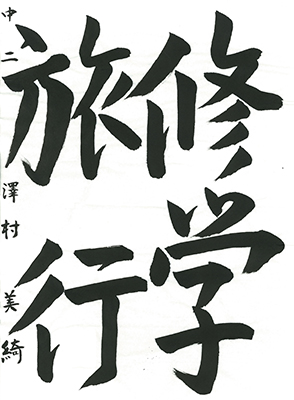 修学
旅行
中二 澤村 美綺